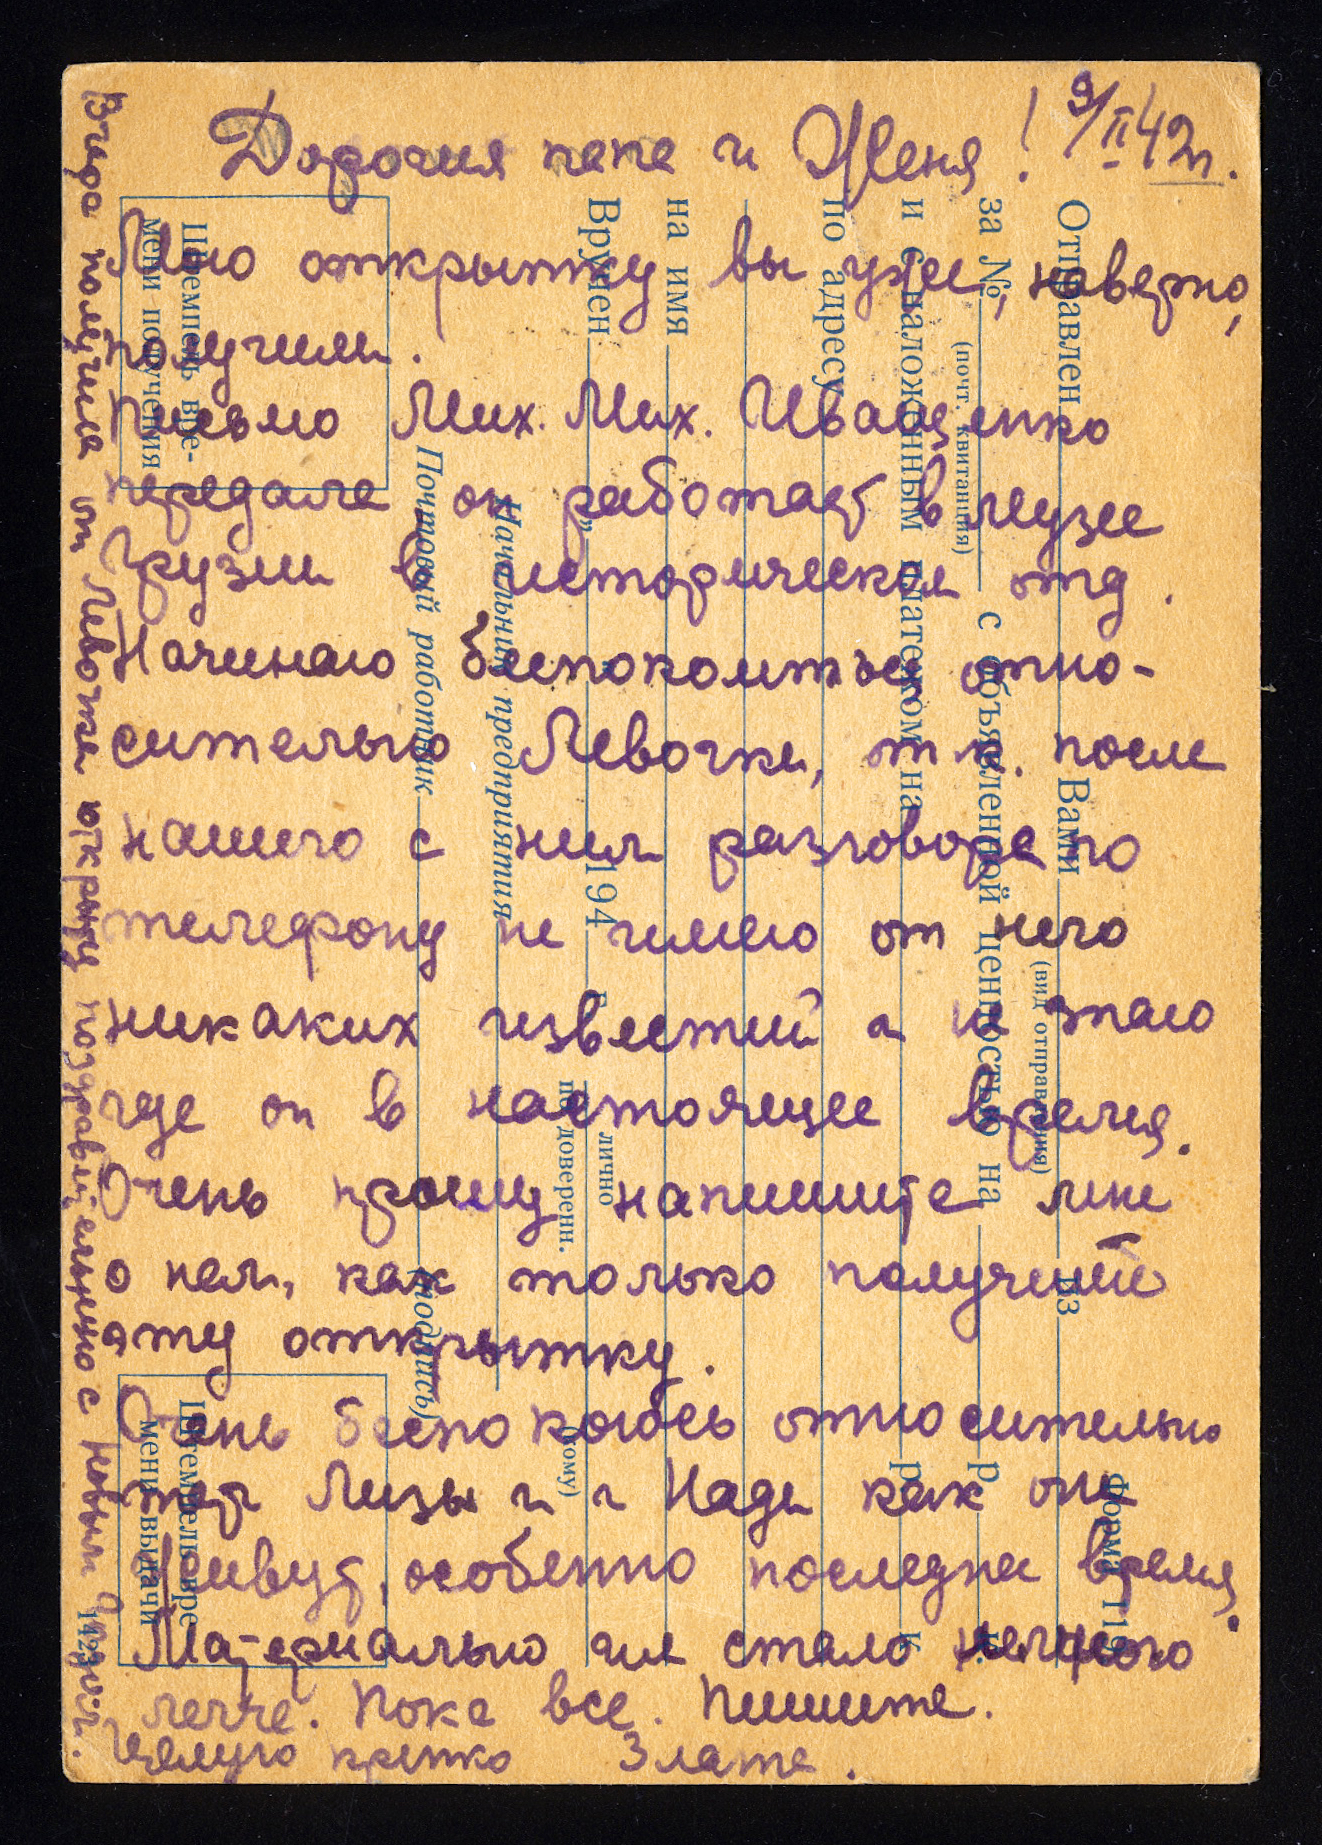 9/II 42г.
Дорогия папа и Женя!
Мою открытку вы уже, наверно,
получили.
Письмо Мих. Мих. Иващенко
передала он работает в музее
Грузии в историческом отд.
Начинаю беспокоиться отно-
сительно Левочки, т.к. после
нашего с ним разговора по
телефону не имею от него
никаких известий и не знаю
где он в настоящее время.
Очень прошу напишите мне
о нем, как только получите
эту открытку.
Очень беспокоюсь относительно
Лизы и Нади как они
живут, особенно последнее время.
Материально им стало немного
легче. Пока все. Пишите.
Целую крепко Злата.
Вчера получила от Левочки открыту поздравительную с Новым Годом.
Отправлен Вами из
(вид отправления)
за № с объявленной ценностью на р. к.
(почт. квитанция)
и с наложенным платежом на р. к.
по адресу
на имя
Вручен „ “ 194 г. лично
по доверенн. (кому)
Начальник предприятия
Почтовый работник (подпись)
Штемпель вре-
мени получения
Штемпель вре-
мени выдачи
Форма 119
142